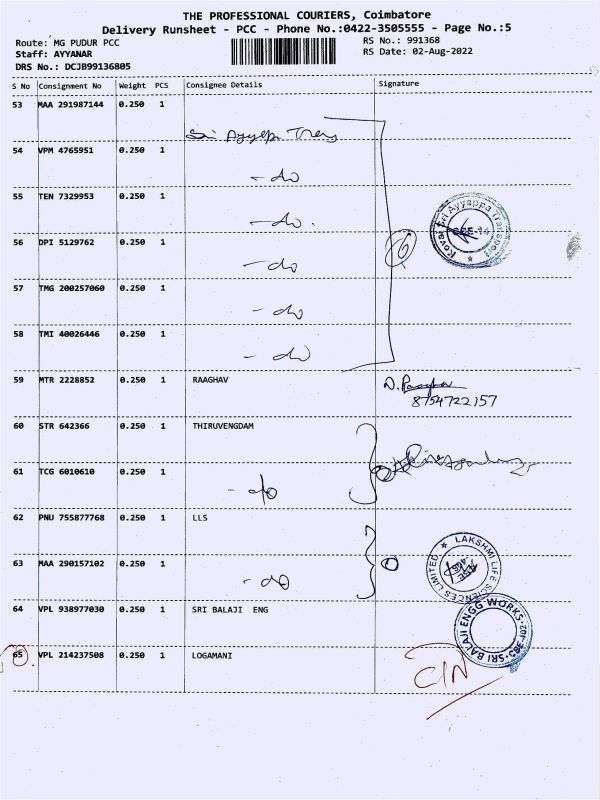 THE PROFESSIONAL COURIERS, Coimbatore
Delivery Runsheet - PCC - Phone No.:0422-3505555 - Page No.:5
Route: MG PUDUR PCC RS No.: 991368
Staff: AYYANAR RS Date: 02-Aug-2022
DRS No.: DCJB99136805
S No Consignment No Weight PCS Consignee Details Signature
53 MAA 291987144 0.250 1
Sri Ayyap Trans
54 VPM 4765951 0.250 1
- do
55 TEN 7329953 0.250 1
- do.
Kovai Sri Ayyappa Transport
CBE-14
56 DPI 5129762 0.250 1
6
- do
57 TMG 200257060 0.250 1
- do
58 TMI 40026446 0.250 1
- do
59 MTR 2228852 0.250 1 RAAGHAV
8754722157
60 STR 642366 0.250 1 THIRUVENGDAM
61 TCG 6010610 0.250 1
- do
62 PNU 755877768 0.250 1 LLS
63 MAA 290157102 0.250 1
- do
LAKSHMI LIFE SCIENCES LIMITED
64 VPL 938977030 0.250 1 SRI BALAJI ENG
SRI BALAJI ENGG WORKS
65 VPL 214237508 0.250 1 LOGAMANI
C/N